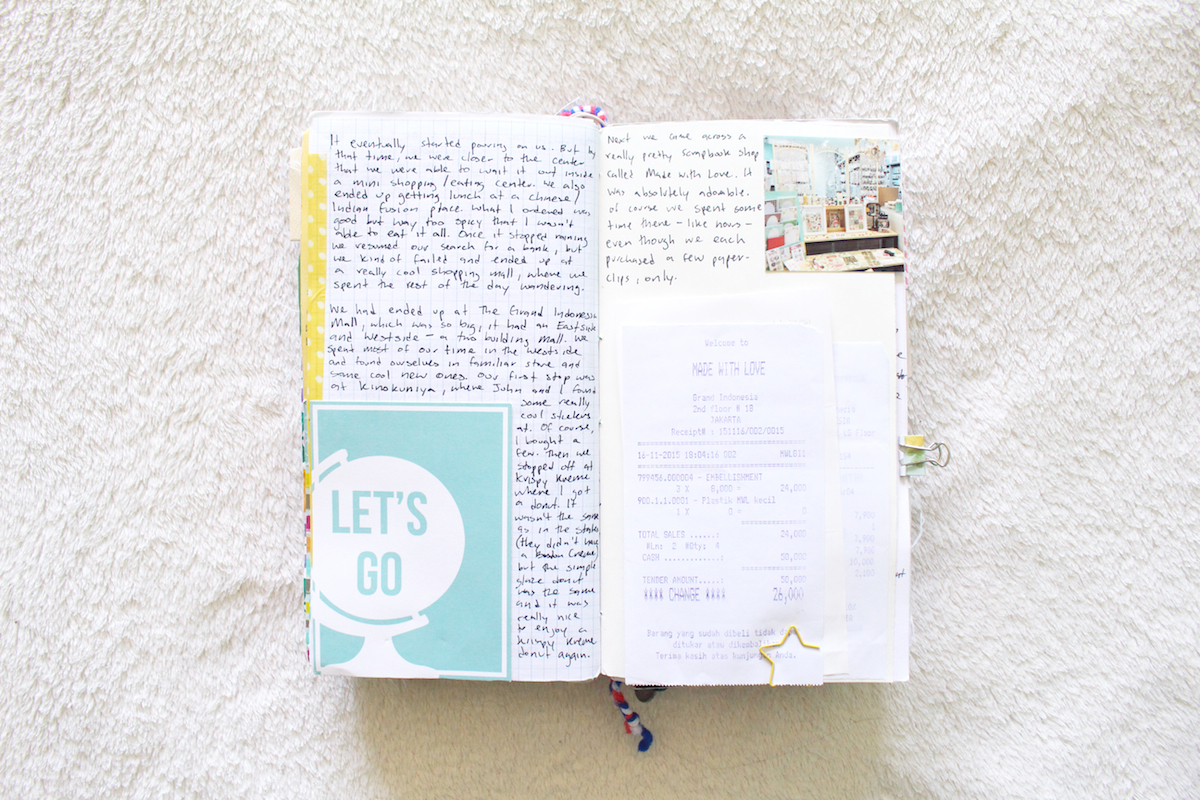 It eventually started pouring on us. But by
that time, we were closer to the center
that we were able to wait it out inside
a mini shopping/eating center. We also
ended up getting lunch at a chinese/
Indian fusion place. What I ordered was
good but way too spicy that I wasn't
able to eat it all. Once it stopped raining
we resumed our search for a bank, but
we kind of failed and ended up at
a really cool shopping mall, where we
spent the rest of the day wandering.
We had ended up at The Grand Indonesia
Mall, which was so big, it had an Eastside
and Westside - a two building mall. We
spent most of our time in the Westside
and found ourselves in familiar store and
some cool new ones. Our first stop was
at Kinokuniya, where John and I found
some really
cool stickers
at. Of course,
I bought a
few. Then we
stopped off at
Krispy Kreme
where I got
a donut. It
wasn't the same
as in the states
(they didn't have
a Creme)
but the simple
glaze donut
was the same
and it was
really nice
to enjoy a
Krispy Kreme
donut again.
LET'S
GO
Next we came across a
really pretty scrapbook shop
called Made with Love. It
was absolutely adorable.
Of course we spent some
time there - like hours -
even though we each
purchased a few paper-
clips, only.
Welcome to
MADE WITH LOVE
Grand Indonesia
2nd floor # 18
JAKARTA
Receipt# : 151116/002/0015
16-11-2015 18:04:16 002 MWLGI1
799456.000004 - EMBELLISHMENT
3 X 8,000 = 24,000
900.1.1.0001 - Plastik MWL kecil
1 X 0 = 0
TOTAL SALES ......: 24,000
#Ln: 2 #Qty: 4
CASH .............: 50,000
TENDER AMOUNT.....: 50,000
**** CHANGE **** 26,000
Barang yang sudah dibeli tidak
ditukar atau
Terima kasih atas kunjungan Anda.